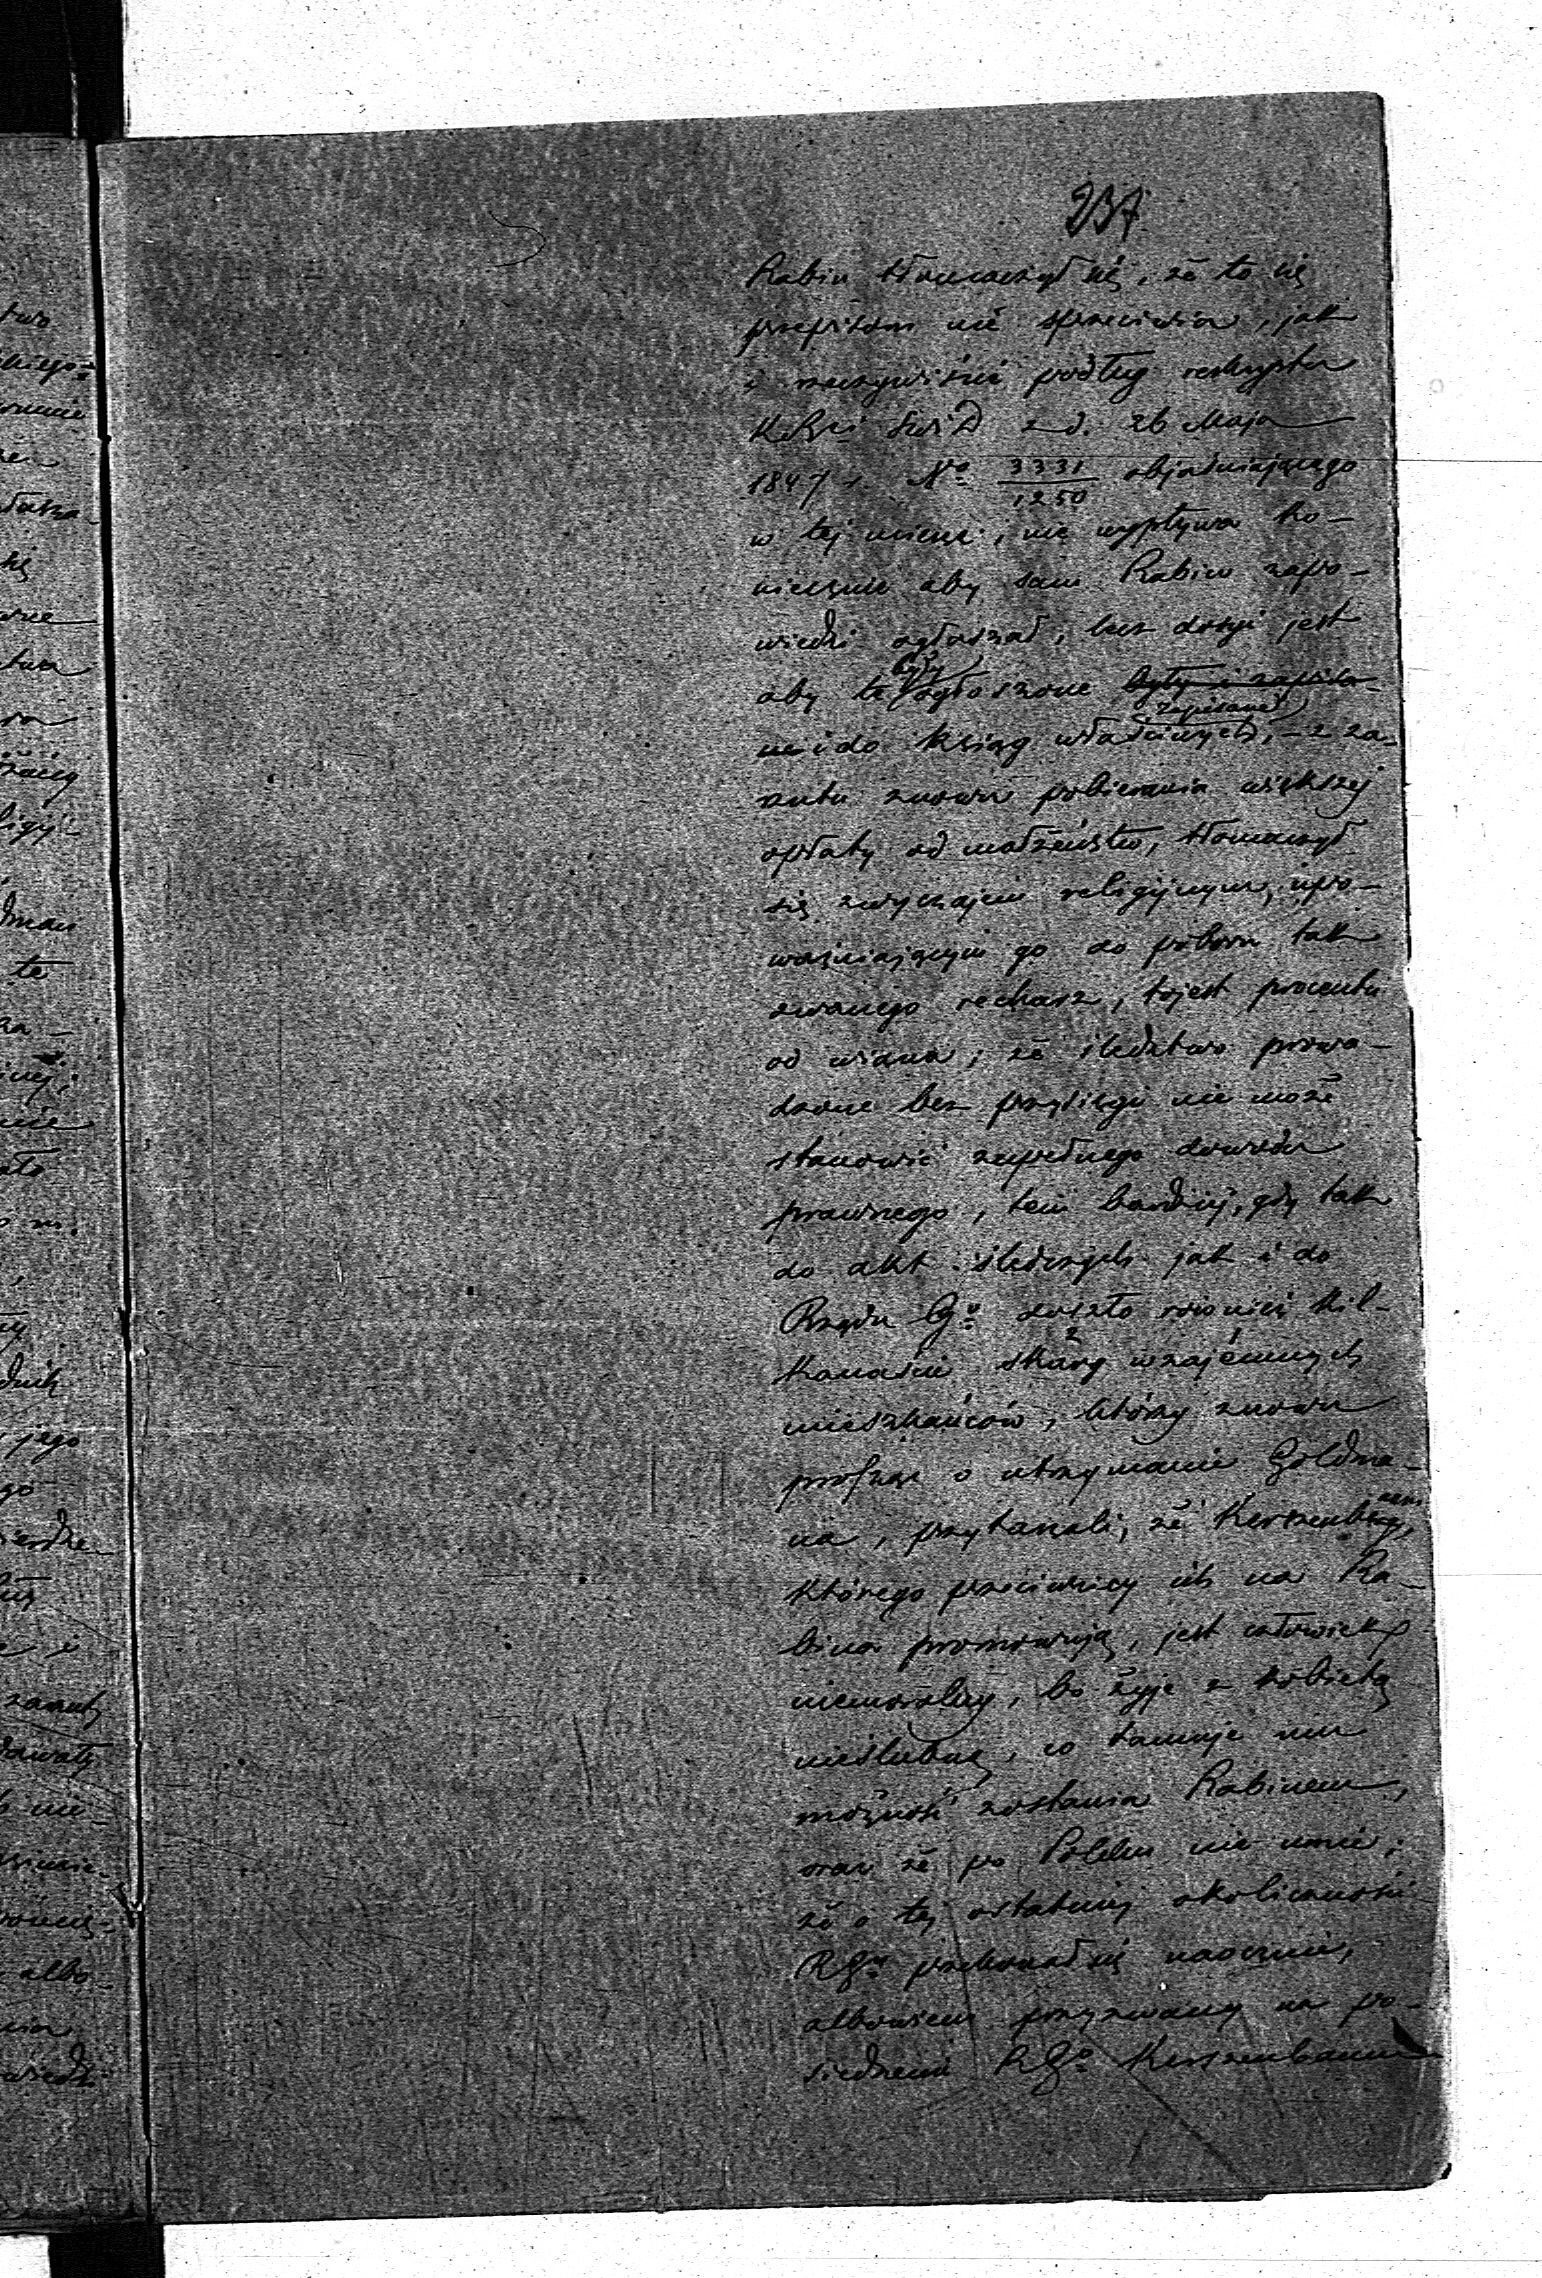 237.
Rabin tłomaczył się, że to się
przepisom nie sprzeciwia, jak
i rzeczywiście podług reskryptu
KRSW i D z d. 26 Maja
1847 r. No 3331/1250 objaśniającego
w tej mierze, nie wypływa ko-
niecznie aby sam Rabin zapo-
wiedzi ogłaszał, lecz dosyć jest
aby te były ogłoszone były i zapisa-
ne i do ksiąg właściwych zapisane, – z za-
rzutu znowu pobierania większej
opłaty od małżeństw, tłomaczył
się zwyczajem religijnym, upo-
ważniającym go do poboru tak
zwanego rechasz, tojest procentu
od wiana; że śledztwo prowa-
dzone bez przysięgi nie może
stanowić zupełnego dowodu
prawnego, tem bardziej, gdy tak
do akt śledczych jak i do
Rządu Go zaszło również kil-
kanaście skarg wzajemnych
mieszkańców, którzy znowu
prosząc o utrzymanie Goldma-
na, przytaczali, że Kerszenb
którego przeciwnicy ich na Ra-
bina promowują, jest człowiek
niemoralny, bo żyje z kobietą
nieślubną, co tamuje mu
możność zostania Rabinem,
oraz że po Polsku nie umie;
że o tej ostatniej okoliczności
RGo przekonał się naocznie,
albowiem przyzwany na po-
siedzenie RGo Kerszenbaum